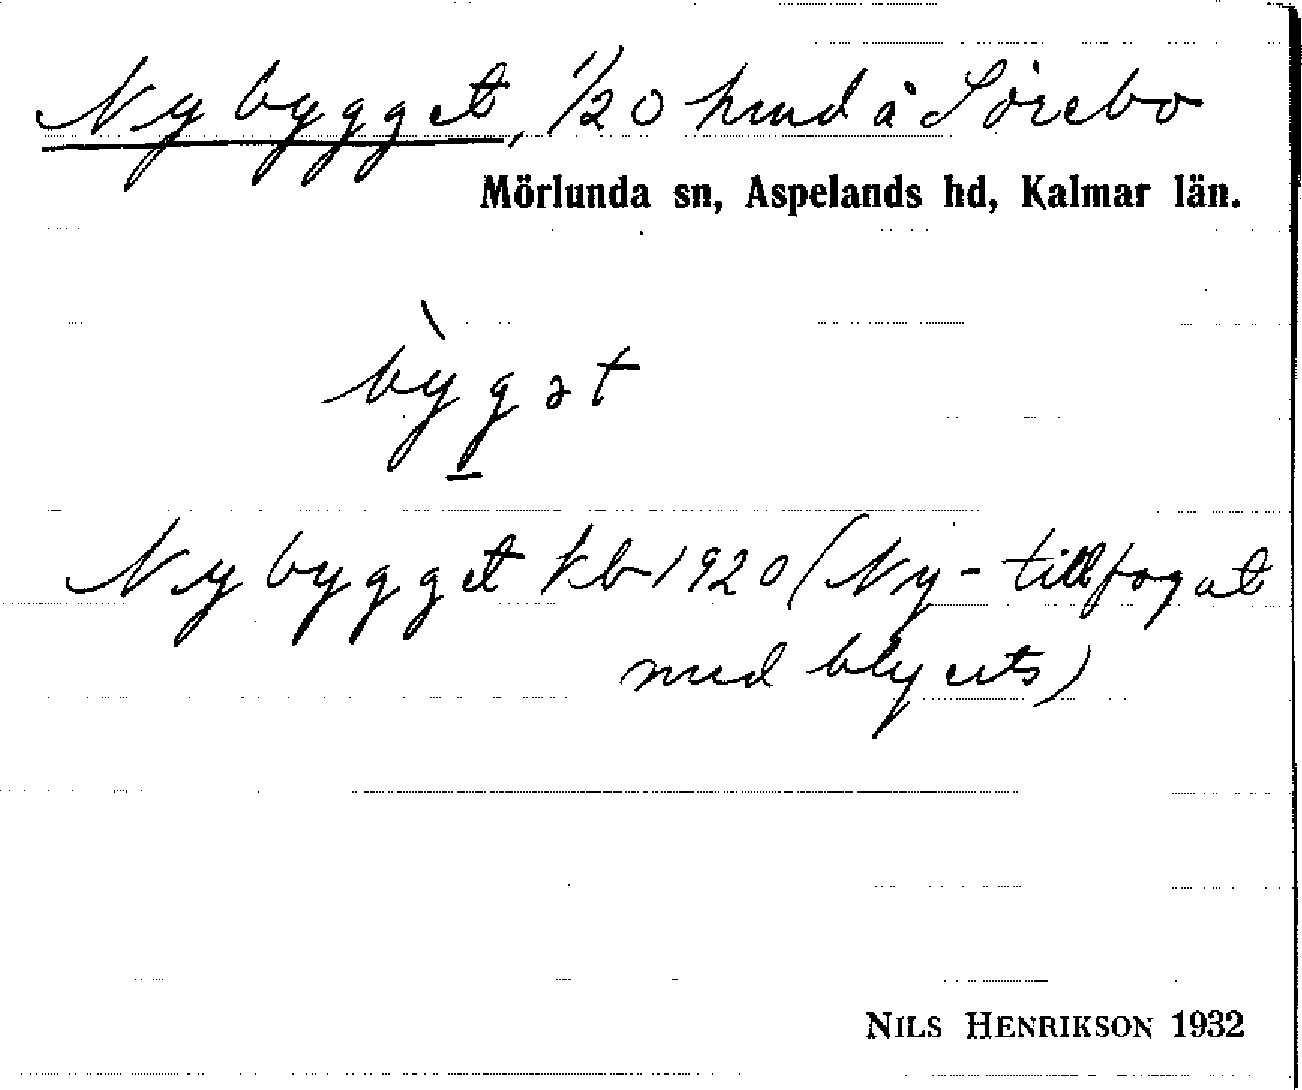 Nybygget, 1/20 hmd å Sörebo
Mörlunda sn, Aspelands hd, Kalmar län.
bỳgət
Nybygget kb 1920 (Ny- tillfogat
med blyerts)
NILS HENRIKSON 1932